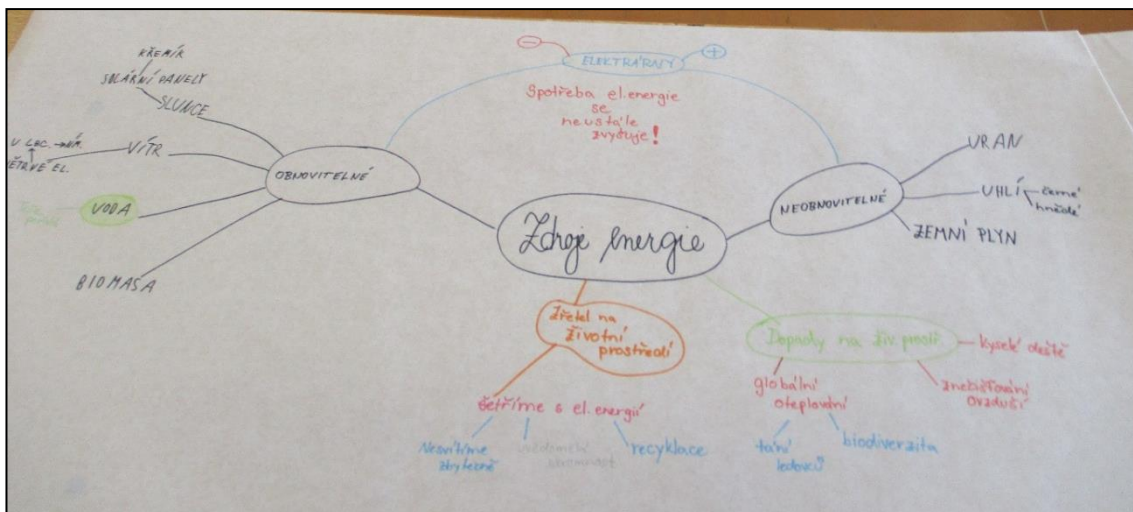 KŘEMÍK
SOLÁRNÍ PANELY
SLUNCE
VÍTR
VĚTRNÉ EL.
VODA
BIOMASA
OBNOVITELNÉ
−
ELEKTRÁRNY
+
Spotřeba el. energie
se
neustále
zvyšuje!
Zdroje energie
NEOBNOVITELNÉ
URAN
UHLÍ
černé
hnědé
ZEMNÍ PLYN
Zřetel na
životní
prostředí
šetříme s el. energií
Nesvítíme
zbytečně
recyklace
Dopady na živ. prostř.
kyselé deště
znečišťování
ovzduší
globální
oteplování
tání
ledovců
biodiverzita